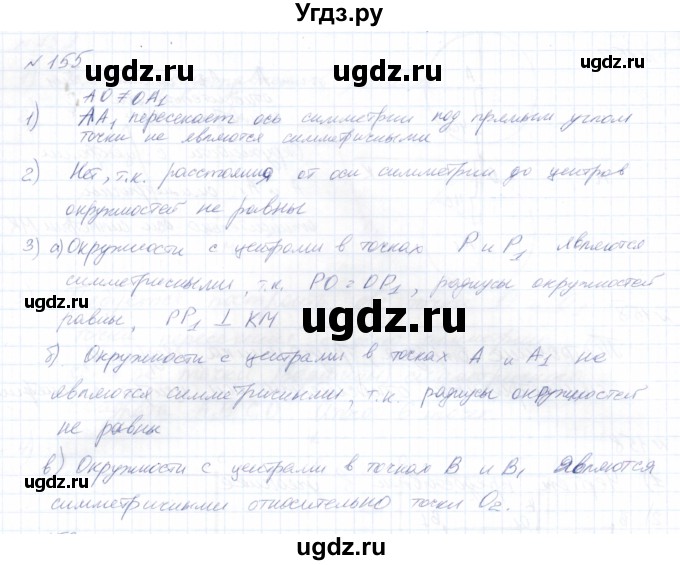 Угдз.ру
№ 155
ugdz.ru ugdz.ru
AO ≠ OA₁
1) AA₁ пересекает ось симметрии под прямым углом
точки не являются симметричными
ugdz.ru ugdz.ru
2) Нет, т.к. расстояния от оси симметрии до центров
окружностей не равны
ugdz.ru
3) а) Окружности с центрами в точках P и P₁ являются
симметричными, т.к. PO = OP₁, радиусы окружностей
ugdz.ru ugdz.ru
равны, PP₁ ⊥ KM
б) Окружности с центрами в точках A и A₁ не
являются симметричными, т.к. радиусы окружностей
ugdz.ru ugdz.ru
не равны
в) Окружности с центрами в точках B и B₁ являются
ugdz.ru ugdz.ru
симметричными относительно точки O₂.
ugdz.ru